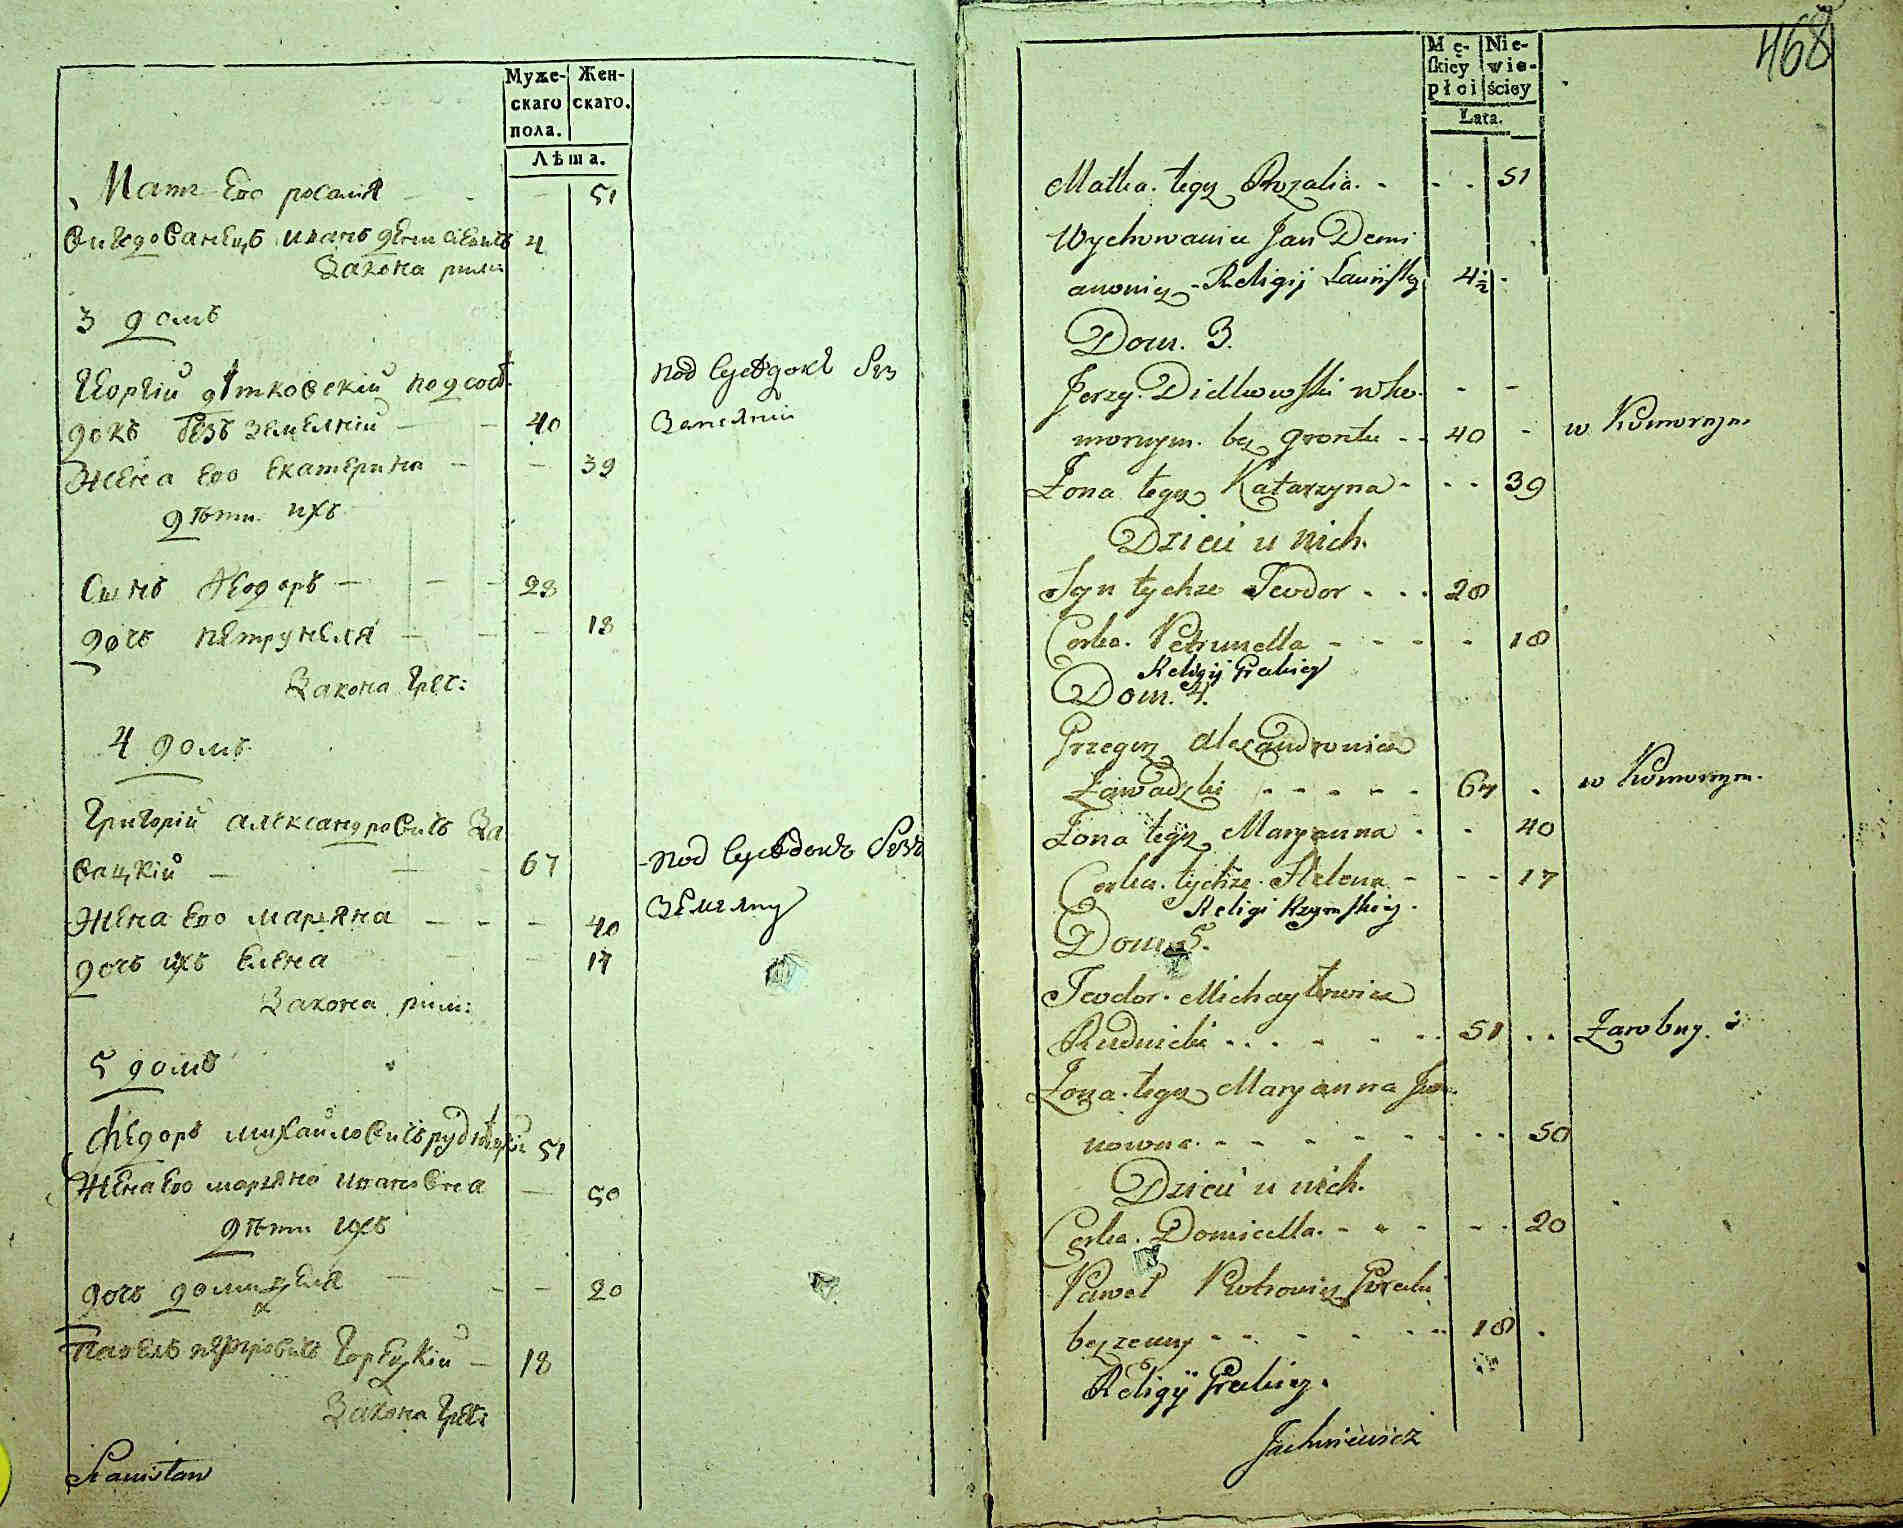 Муже-
скаго
пола.
Жен-
скаго.
Лѣта.
Мать Его розалия - - - 51
Закона рим:
3 домъ
Георгий дѣтковский подсосѣ-
докъ безъ земелний - - 40
под Суседокъ без
Жена Его Екатерина - - 39
дѣти ихъ
Сынъ Феодоръ - - - 28
дочь петрунеля - - - 18
Закона Греч:
4 домъ
Григорий александровичь За
вацкий - - - 67
-под Суседокъ безъ
Жена Его марьяна - - - 40
дочь ихъ Елена - - - 17
Закона рим:
5 домъ
Федоръ михайловичь рудницкий 51
Жена Его марьяна ивановна - 50
дѣти ихъ
дочь домицеля - - - 20
Павелъ петровичь - 18
Закона Греч:
Stanisław
468
Mę-
skiey
płci
Nie-
wie-
ściey
Lata.
Matka tegoz Rozalia. - - - 51
Wychowaniec Jan Demi
anowicz - Religij Łacińskiey 4½ -
Dom. 3.
Jerzy Didkowski w ko- - -
mornym. bez gruntu - - 40 - w Komornym.
Żona tegoz Katarzyna - - - 39
Dzieci u nich.
Syn tychze Teodor - - - 28
Corka. Petrunella - - - - - 18
Religij Greckiey
Dom. 4.
Grzegorz Alexandrowicz
Zawadzki - - - - - 67 - w Komornym.
Żona tegoz Maryanna - - 40
Corka. tychże. Helena - - - - 17
Religi Rzymskiey.
Dom 5.
Teodor. Michayłowicz
Rudnicki - - - - - - 51 - - Zarobny.
Żona. tegoz Maryanna Jwa-
nowna. - - - - - - - - 50
Dzieci u nich.
Corka. Domicella. - - - - - 20
Paweł Piotrowicz
bezżenny - - - - - - 18 -
Religij Greckiey.
Jachniewicz